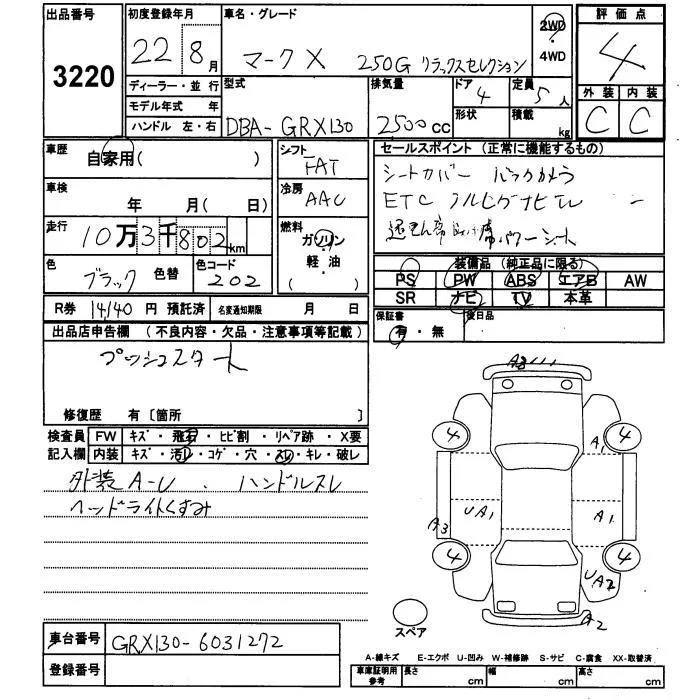 出品番号
3220
初度登録年月
22 8月
車名・グレード
マークX 250G リラックスセレクション
2WD
・
4WD
評価点
4
外装 内装
C C
ディーラー・並行
モデル年式 年
ハンドル 左・右
型式
DBA-GRX130
排気量
2500cc
ドア
4
形状
定員
5人
積載
kg
車歴
自家用( )
車検
年 月( 日)
走行
10万3千802km
色
ブラック
色替
色コード
202
シフト
FAT
冷房
AAC
燃料
ガソリン
軽・油
( )
セールスポイント (正常に機能するもの)
シートカバー バックカメラ
ETC フルセグナビTV
パワーシート
装備品 (純正品に限る)
PS PW ABS エアB AW
SR ナビ TV 本革
R券 14140 円 預託済 名変通知期限 月 日
保証書
有・無
後日品
出品店申告欄 (不良内容・欠品・注意事項等記載)
プッシュスタート
修復歴 有〔箇所 〕
検査員
記入欄
FW キズ・飛石・ヒビ割・リペア跡・X要
内装 キズ・汚レ・コゲ・穴・スレ・キレ・破レ
外装A-U. ハンドルスレ
ヘッドライトくすみ
4 4
A1
UA1 A1
A3
4 4
UA2
A2
スペア
車台番号 GRX130-6031272
登録番号
A-線キズ E-エクボ U-凹み W-補修跡 S-サビ C-腐食 XX-取替済
車庫証明用
参考
長さ cm 幅 cm 高さ cm